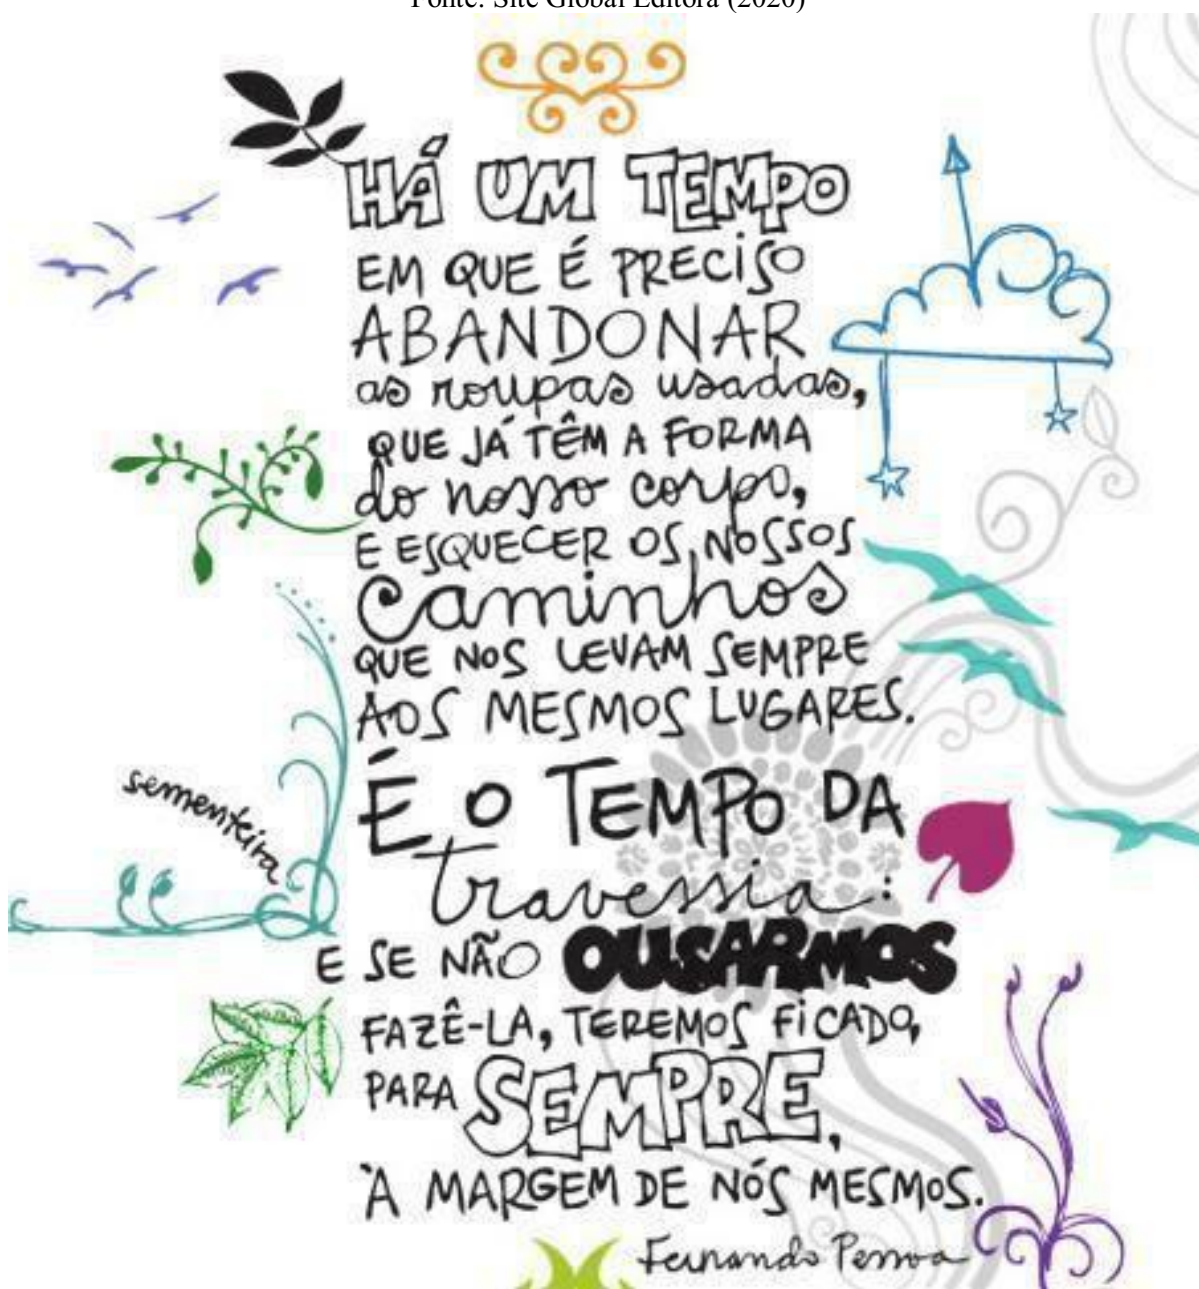 Fonte: Site Global Editora (2020)
HÁ UM TEMPO
EM QUE É PRECISO
ABANDONAR
as roupas usadas,
QUE JÁ TÊM A FORMA
do nosso corpo,
E ESQUECER OS NOSSOS
Caminhos
QUE NOS LEVAM SEMPRE
AOS MESMOS LUGARES.
É O TEMPO DA
travessia:
sementeira
E SE NÃO OUSARMOS
FAZÊ-LA, TEREMOS FICADO,
PARA SEMPRE,
À MARGEM DE NÓS MESMOS.
Fernando Pessoa